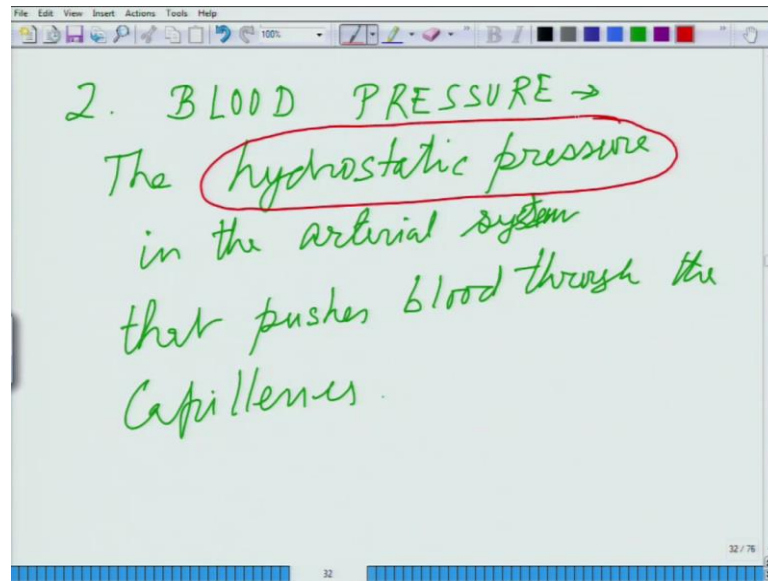 File Edit View Insert Actions Tools Help
100% B I
2. BLOOD PRESSURE →
The hydrostatic pressure
in the arterial system
that pushes blood through the
Capilleries.
32 / 76
32